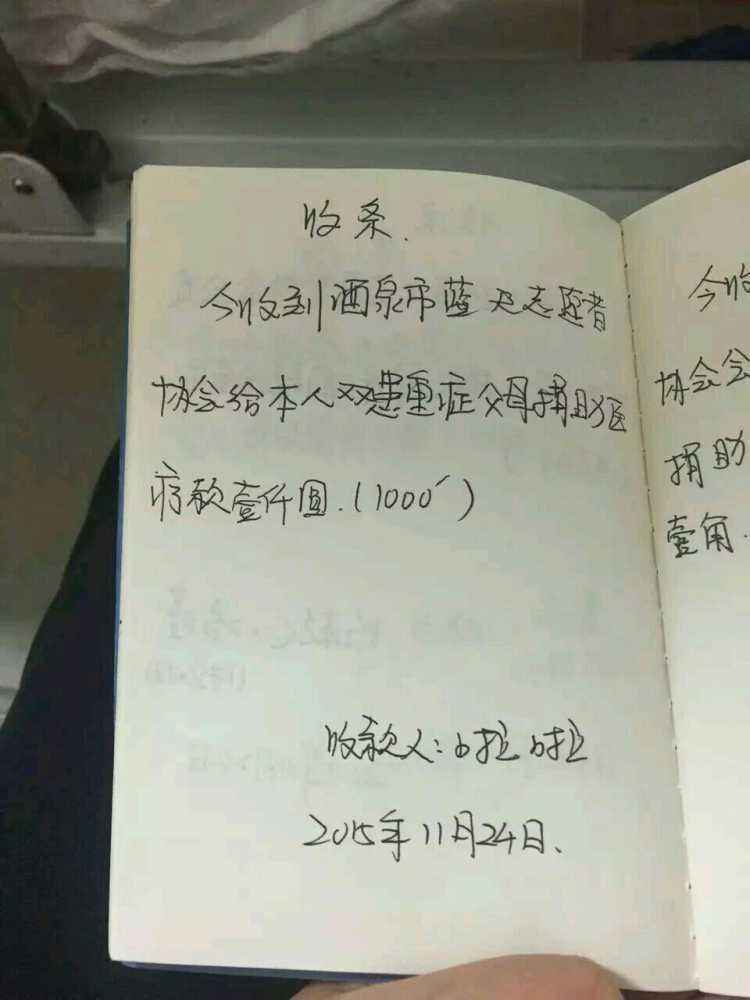 收条.
今收到酒泉市蓝天志愿者
协会给本人双患重症父母捐助医
疗款壹仟圆.(1000)
收款人:啦啦
2015年11月24日.
今收
协会会
捐助
壹角.